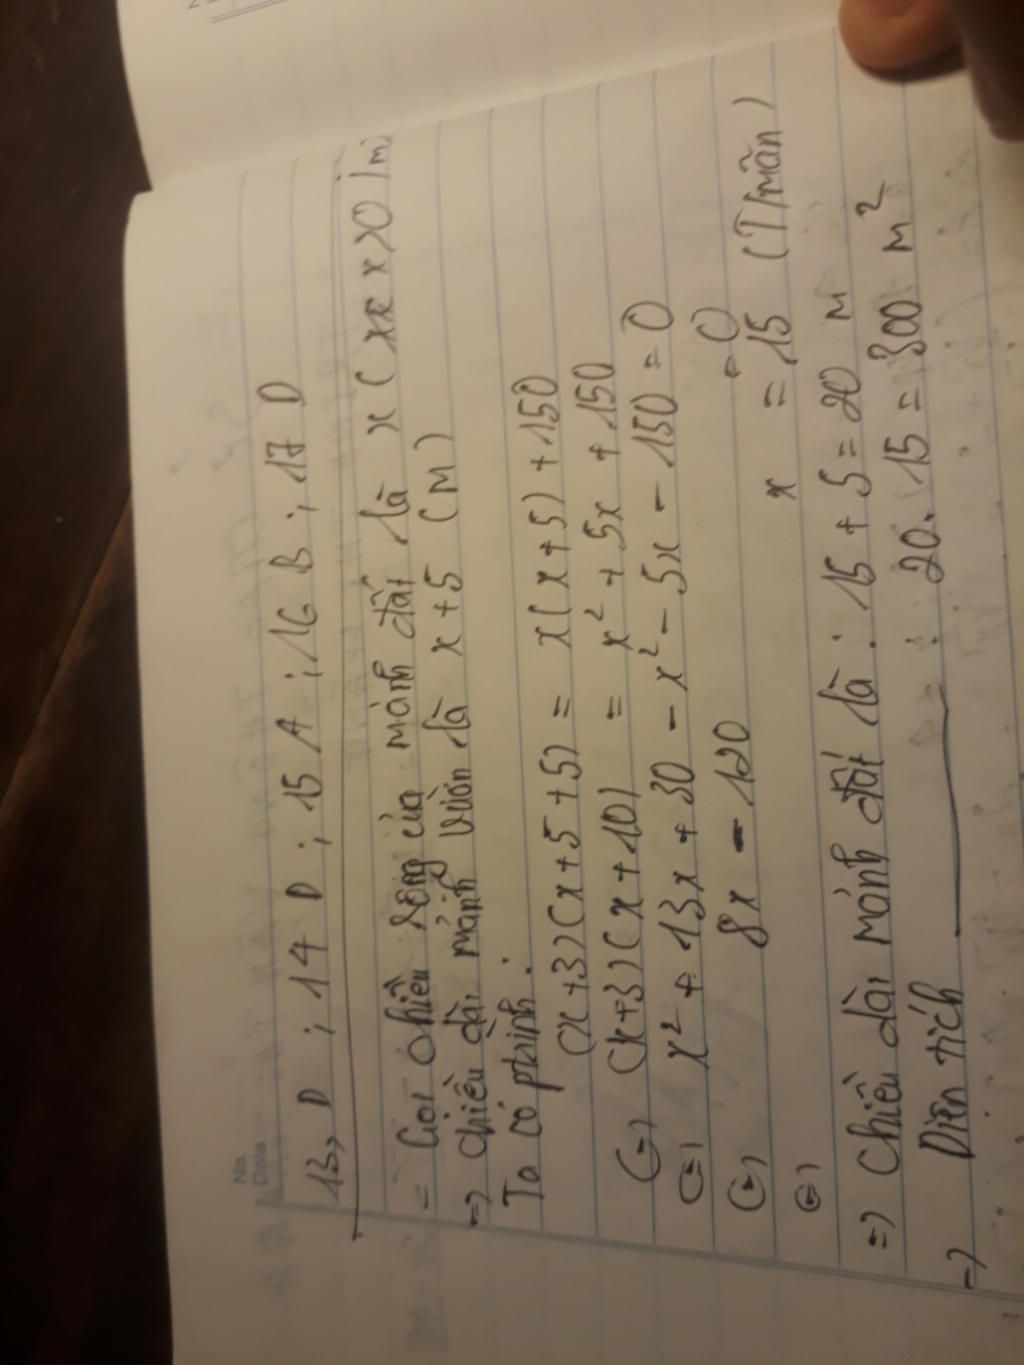 No.
Date
13, D ; 14 D ; 15 A ; 16 B ; 17 D
- Gọi chiều rộng của mảnh đất là x ( x > 0 ( m )
=> chiều dài mảnh vườn là x + 5 (m)
Ta có ptrình :
(x + 3)(x + 5 + 5) = x(x + 5) + 150
(=) (x + 3)(x + 10) = x² + 5x + 150
(=) x² + 13x + 30 - x² - 5x - 150 = 0
(=) 8x - 120 = 0
(=) x = 15 (T/mãn)
=> Chiều dài mảnh đất là : 15 + 5 = 20 m
=> Diện tích : 20. 15 = 300 m²